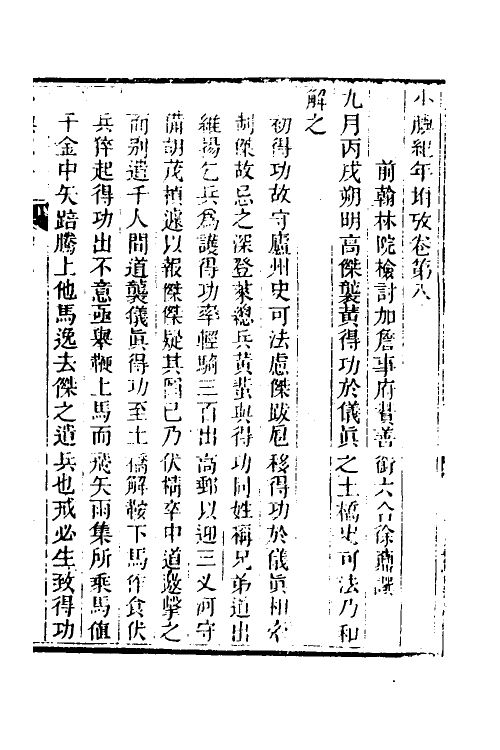 小腆紀年附攷卷第八
前翰林院檢討加詹事府贊善銜六合徐鼒譔
九月丙戌朔明高傑襲黃得功於儀眞之土橋史可法乃和
解之
初得功故守廬州史可法慮傑跋扈移得功於儀眞相牽
制傑故忌之深登萊總兵黃蜚與得功同姓稱兄弟道出
維揚乞兵爲護得功率輕騎三百出高郵以迎三义河守
備胡茂楨遽以報傑傑疑其圖已乃伏精卒中道邀擊之
而别遣千人間道襲儀眞得功至土橋解鞍下馬作食伏
兵猝起得功出不意亟舉鞭上馬而飛矢雨集所乘馬值
千金中矢踣騰上他馬逸去傑之遣兵也戒必生致得功